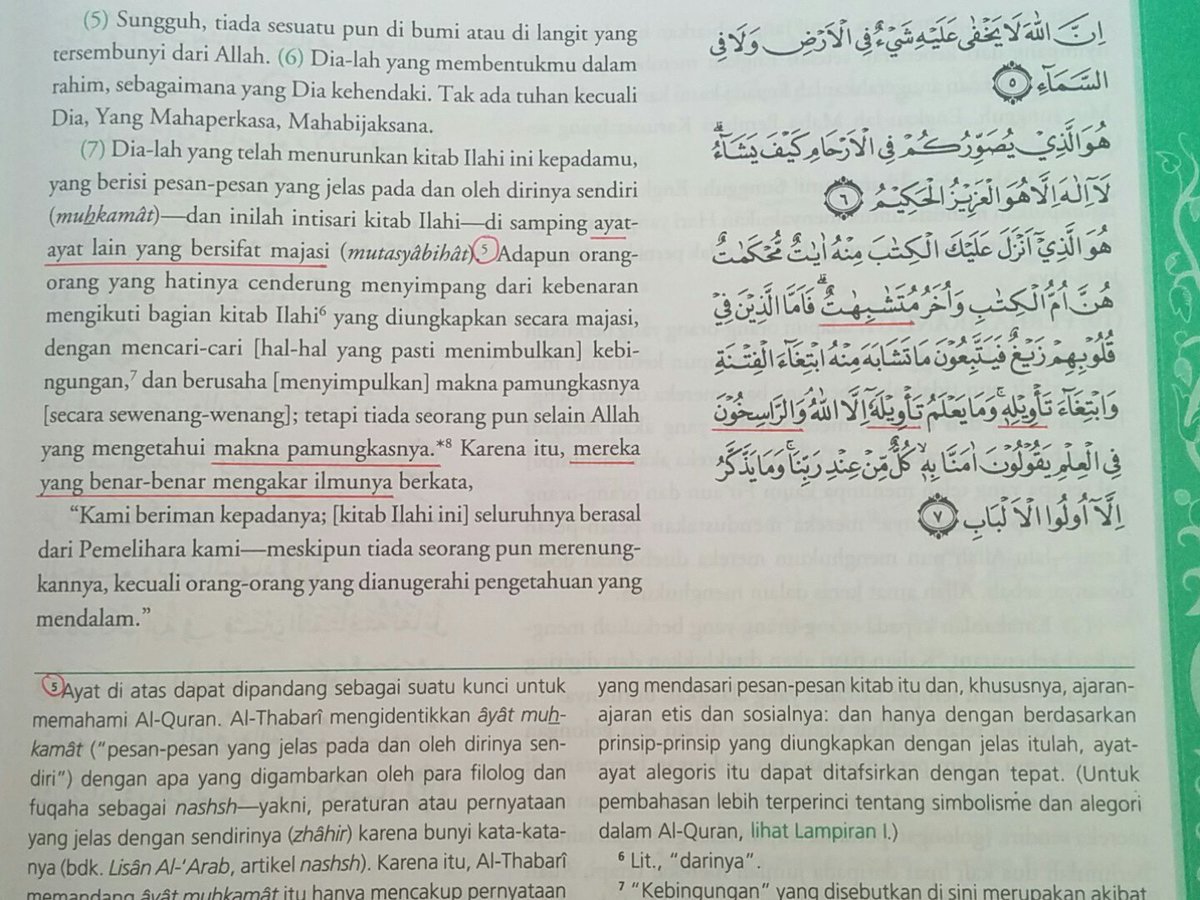 (5) Sungguh, tiada sesuatu pun di bumi atau di langit yang
tersembunyi dari Allah. (6) Dia-lah yang membentukmu dalam
rahim, sebagaimana yang Dia kehendaki. Tak ada tuhan kecuali
Dia, Yang Mahaperkasa, Mahabijaksana.
(7) Dia-lah yang telah menurunkan kitab Ilahi ini kepadamu,
yang berisi pesan-pesan yang jelas pada dan oleh dirinya sendiri
(muẖkamât)—dan inilah intisari kitab Ilahi—di samping ayat-
ayat lain yang bersifat majasi (mutasyâbihât).⁵ Adapun orang-
orang yang hatinya cenderung menyimpang dari kebenaran
mengikuti bagian kitab Ilahi⁶ yang diungkapkan secara majasi,
dengan mencari-cari [hal-hal yang pasti menimbulkan] kebi-
ngungan,⁷ dan berusaha [menyimpulkan] makna pamungkasnya
[secara sewenang-wenang]; tetapi tiada seorang pun selain Allah
yang mengetahui makna pamungkasnya.*⁸ Karena itu, mereka
yang benar-benar mengakar ilmunya berkata,
"Kami beriman kepadanya; [kitab Ilahi ini] seluruhnya berasal
dari Pemelihara kami—meskipun tiada seorang pun merenung-
kannya, kecuali orang-orang yang dianugerahi pengetahuan yang
mendalam."
اِنَّ اللّٰهَ لَا يَخْفٰى عَلَيْهِ شَيْءٌ فِى الْاَرْضِ وَلَا فِى
السَّمَاۤءِ ٥
هُوَ الَّذِيْ يُصَوِّرُكُمْ فِى الْاَرْحَامِ كَيْفَ يَشَاۤءُ ۗ
لَآ اِلٰهَ اِلَّا هُوَ الْعَزِيْزُ الْحَكِيْمُ ٦
هُوَ الَّذِيْٓ اَنْزَلَ عَلَيْكَ الْكِتٰبَ مِنْهُ اٰيٰتٌ مُّحْكَمٰتٌ
هُنَّ اُمُّ الْكِتٰبِ وَاُخَرُ مُتَشٰبِهٰتٌ ۗ فَاَمَّا الَّذِيْنَ فِيْ
قُلُوْبِهِمْ زَيْغٌ فَيَتَّبِعُوْنَ مَا تَشَابَهَ مِنْهُ ابْتِغَاۤءَ الْفِتْنَةِ
وَابْتِغَاۤءَ تَأْوِيْلِهٖ ۚ وَمَا يَعْلَمُ تَأْوِيْلَهٗٓ اِلَّا اللّٰهُ وَالرَّاسِخُوْنَ
فِى الْعِلْمِ يَقُوْلُوْنَ اٰمَنَّا بِهٖ ۙ كُلٌّ مِّنْ عِنْدِ رَبِّنَا ۚ وَمَا يَذَّكَّرُ
اِلَّآ اُولُوا الْاَلْبَابِ ٧
⁵ Ayat di atas dapat dipandang sebagai suatu kunci untuk
memahami Al-Quran. Al-Thabarî mengidentikkan âyât muẖ-
kamât ("pesan-pesan yang jelas pada dan oleh dirinya sen-
diri") dengan apa yang digambarkan oleh para filolog dan
fuqaha sebagai nashsh—yakni, peraturan atau pernyataan
yang jelas dengan sendirinya (zhâhir) karena bunyi kata-kata-
nya (bdk. Lisân Al-'Arab, artikel nashsh). Karena itu, Al-Thabarî
memandang âyât muẖkamât itu hanya mencakup pernyataan
yang mendasari pesan-pesan kitab itu dan, khususnya, ajaran-
ajaran etis dan sosialnya: dan hanya dengan berdasarkan
prinsip-prinsip yang diungkapkan dengan jelas itulah, ayat-
ayat alegoris itu dapat ditafsirkan dengan tepat. (Untuk
pembahasan lebih terperinci tentang simbolisme dan alegori
dalam Al-Quran, lihat Lampiran I.)
⁶ Lit., "darinya".
⁷ "Kebingungan" yang disebutkan di sini merupakan akibat